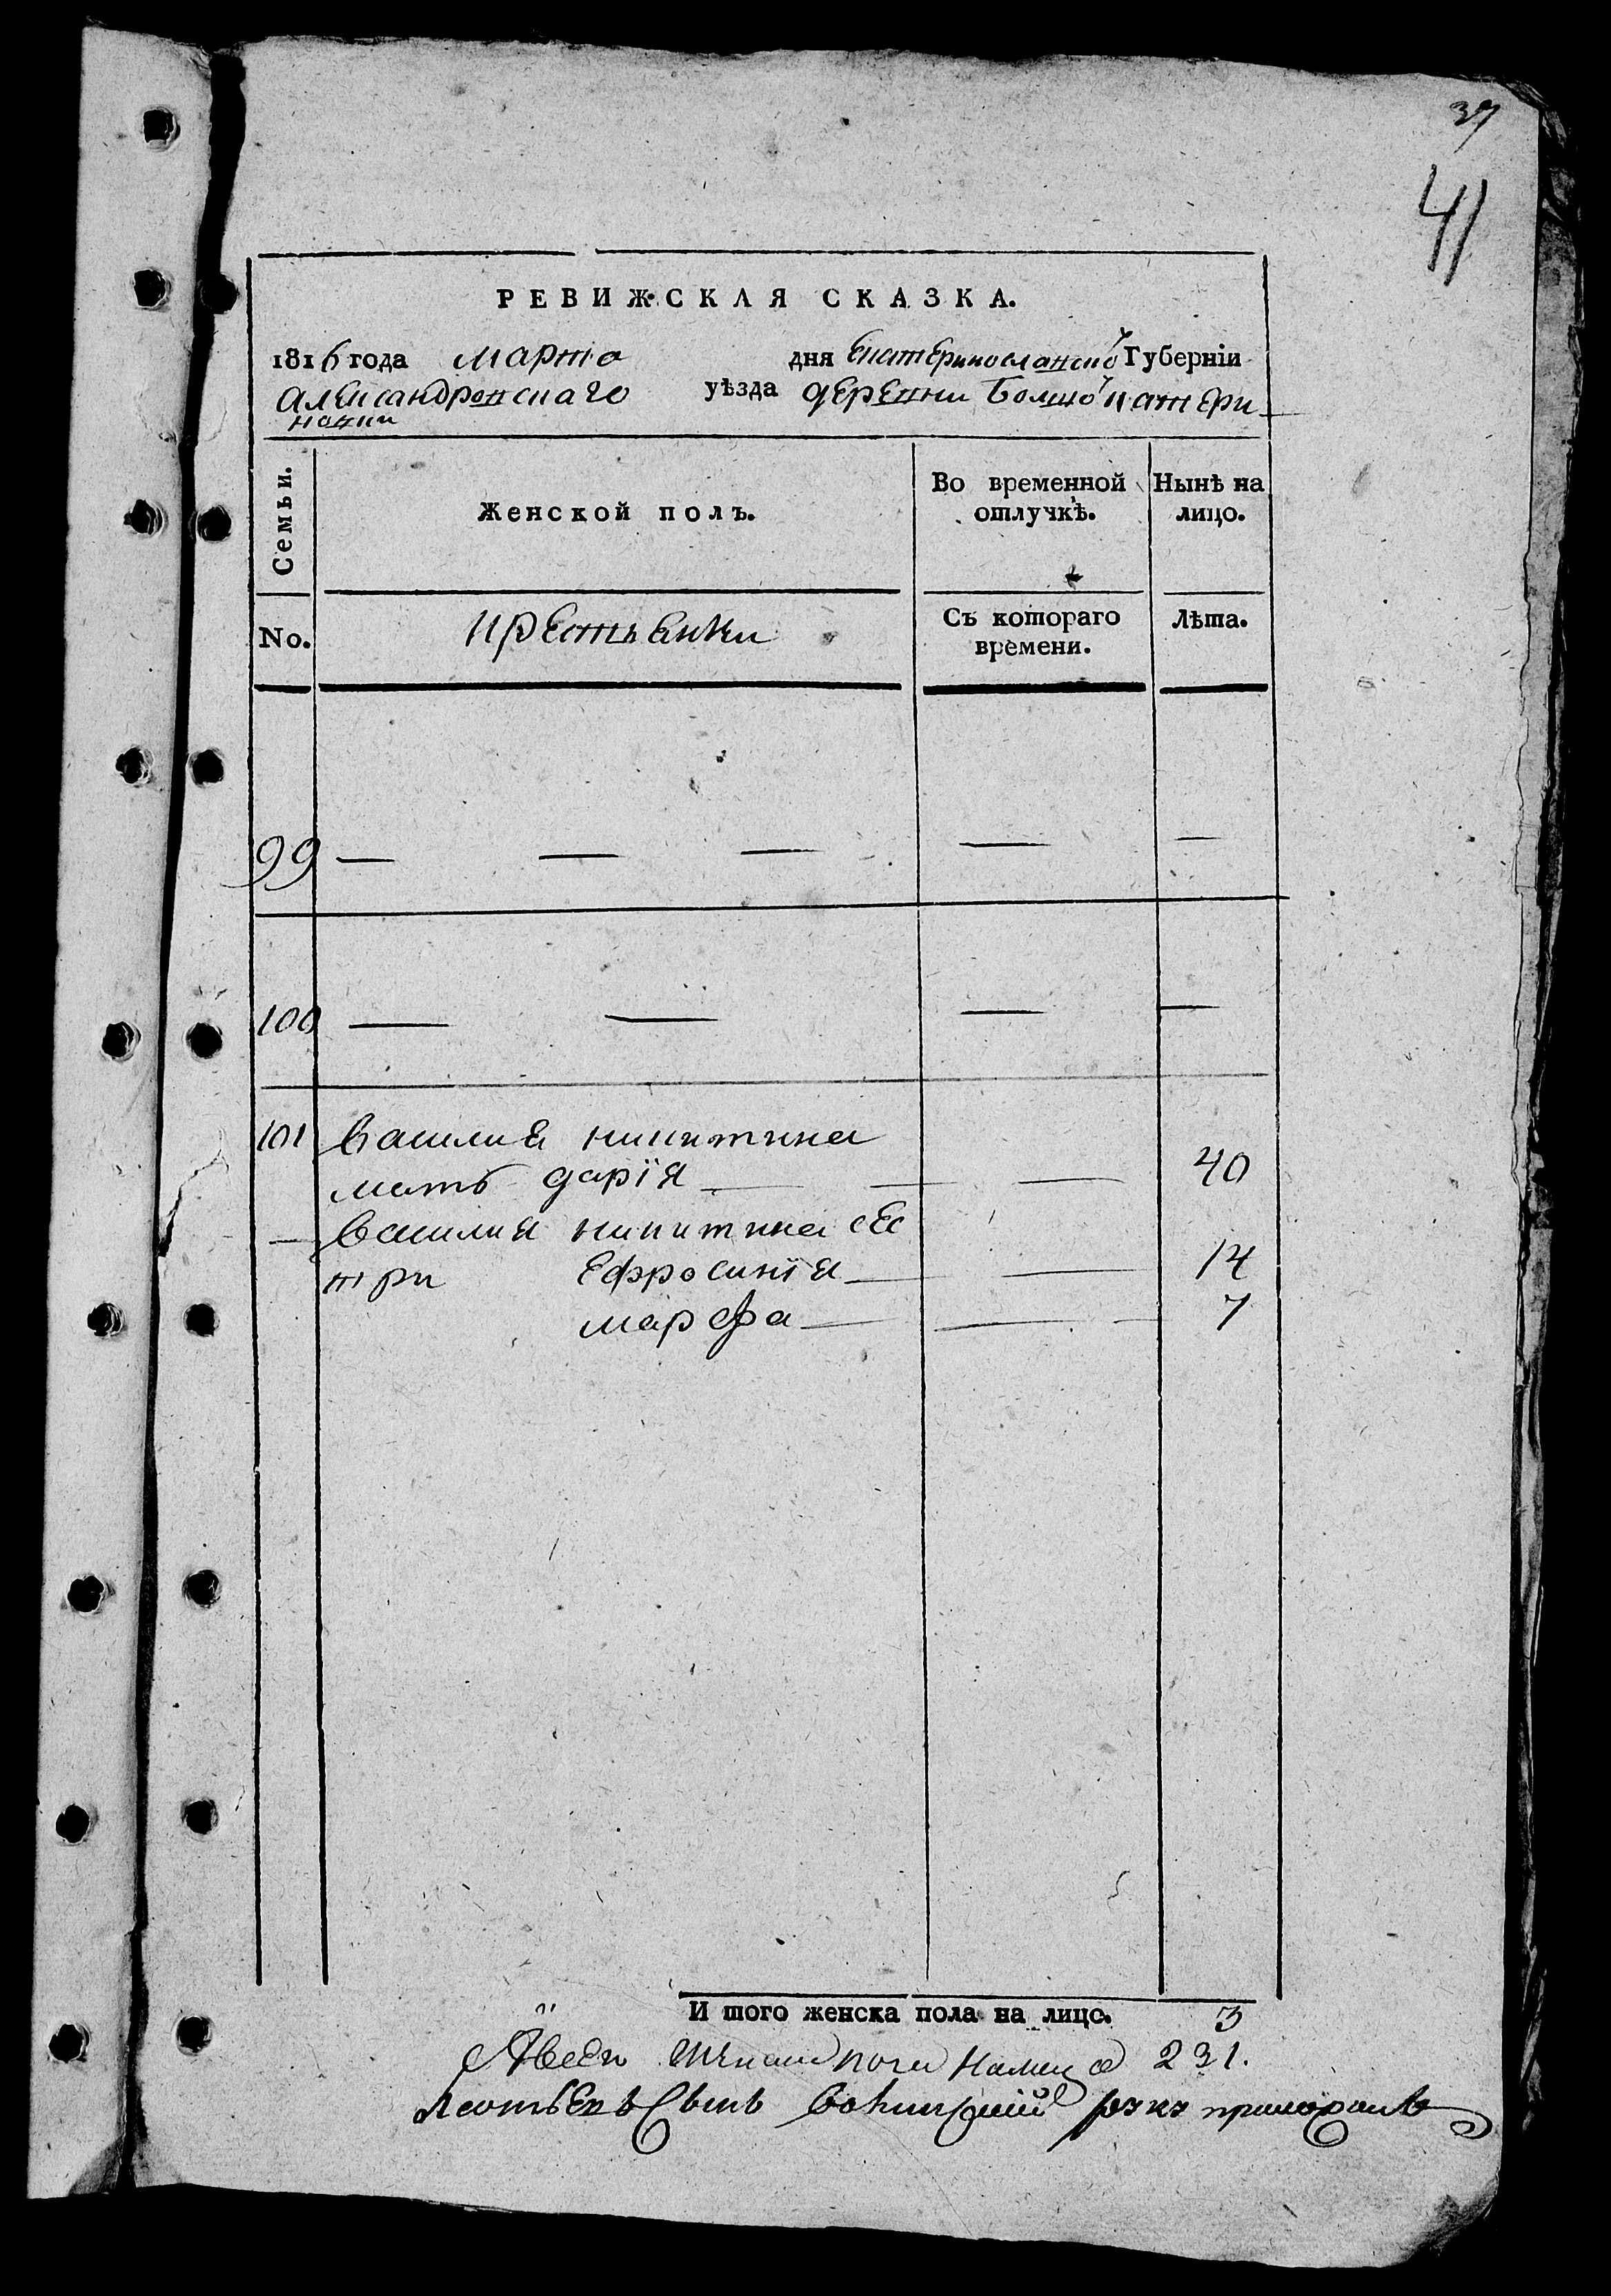 37
41
РЕВИЖСКАЯ СКАЗКА.
1816 года марта дня Екатеринославской Губернїи
александровскаго уѣзда деревни Болшой катери
новки
Семьи. Женской полъ. Во временной отлучкѣ. Нынѣ на лицо.
No. крестьянки Съ котораго времени. Лѣта.
99 — — — — —
100 — — — —
101 василия никитина
мать дарїя — — — 40
— василия никитина сес
три ефросинїя — — 14
марфа — — 7
И того женска пола на лицо. 3
Всеи женска пола налицо 231.